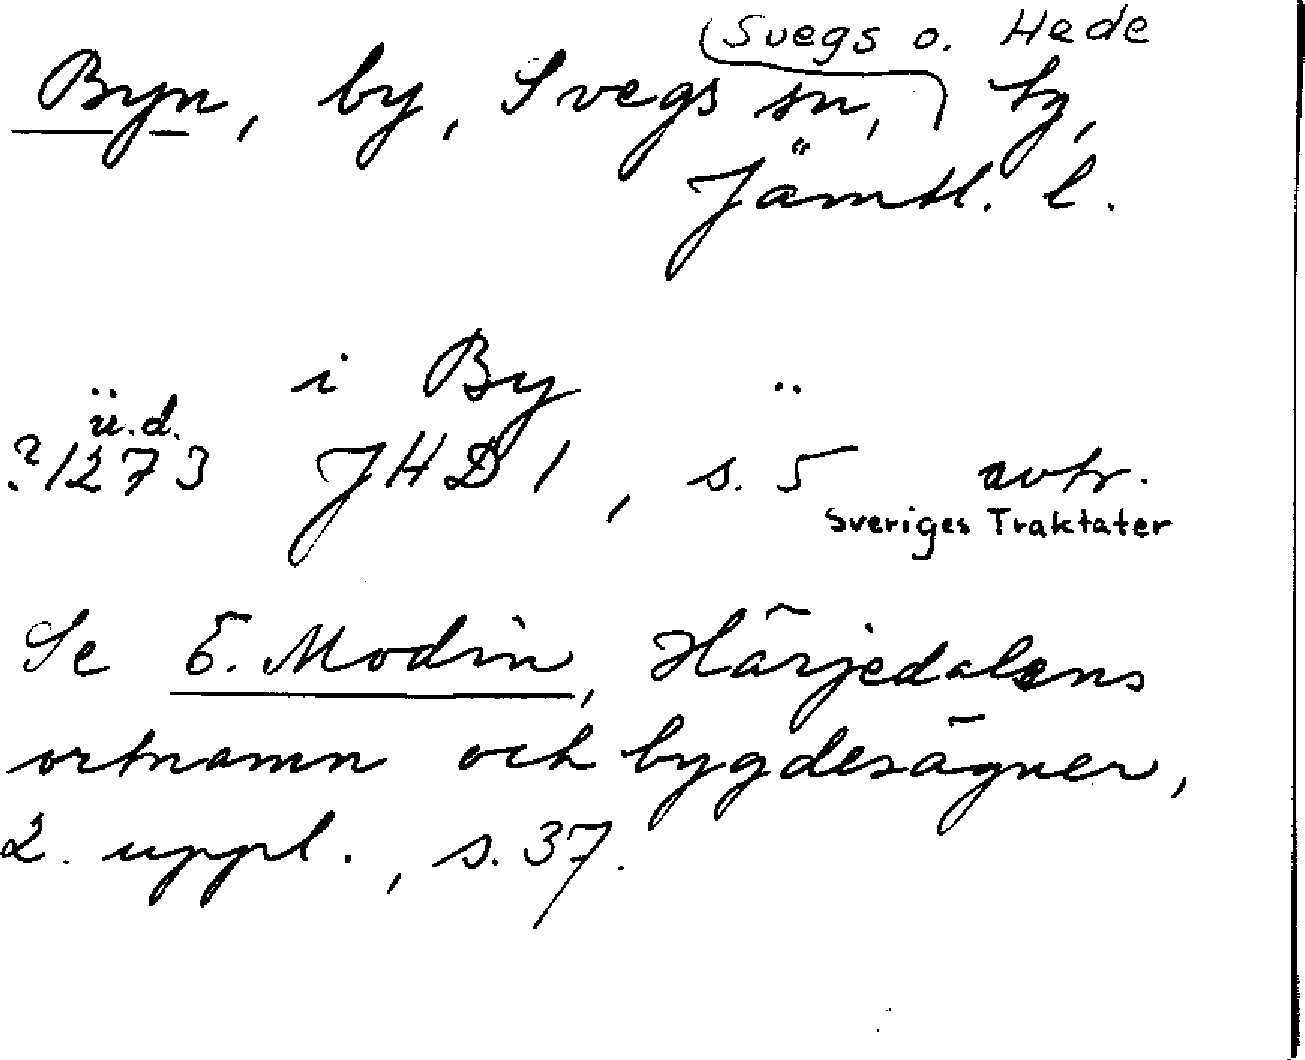 Svegs o. Hede
Byn, by, Svegs sn, tg,
Jämtl. l.
i By
u.d.
?1273 JHD 1, s. 5 avtr.
Sveriges Traktater
Se E. Modin, Härjedalens
ortnamn och bygdesägner,
2. uppl., s. 37.